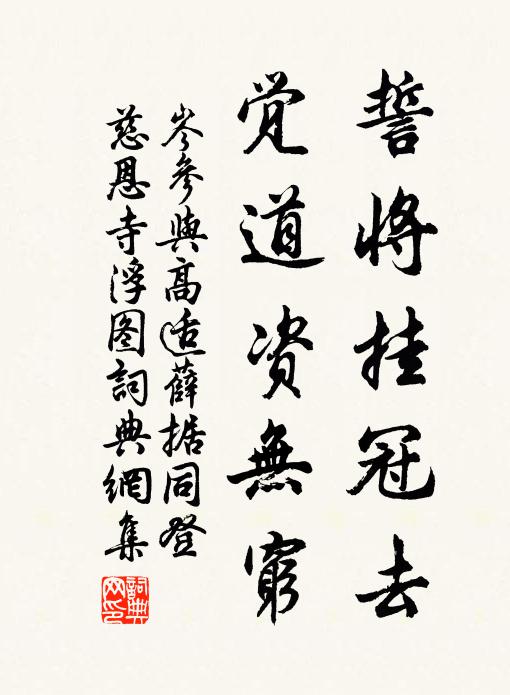 誓將挂冠去
覚道资無窮
岑參與高适薛据同登
慈恩寺浮图詞典網集
詞典网印